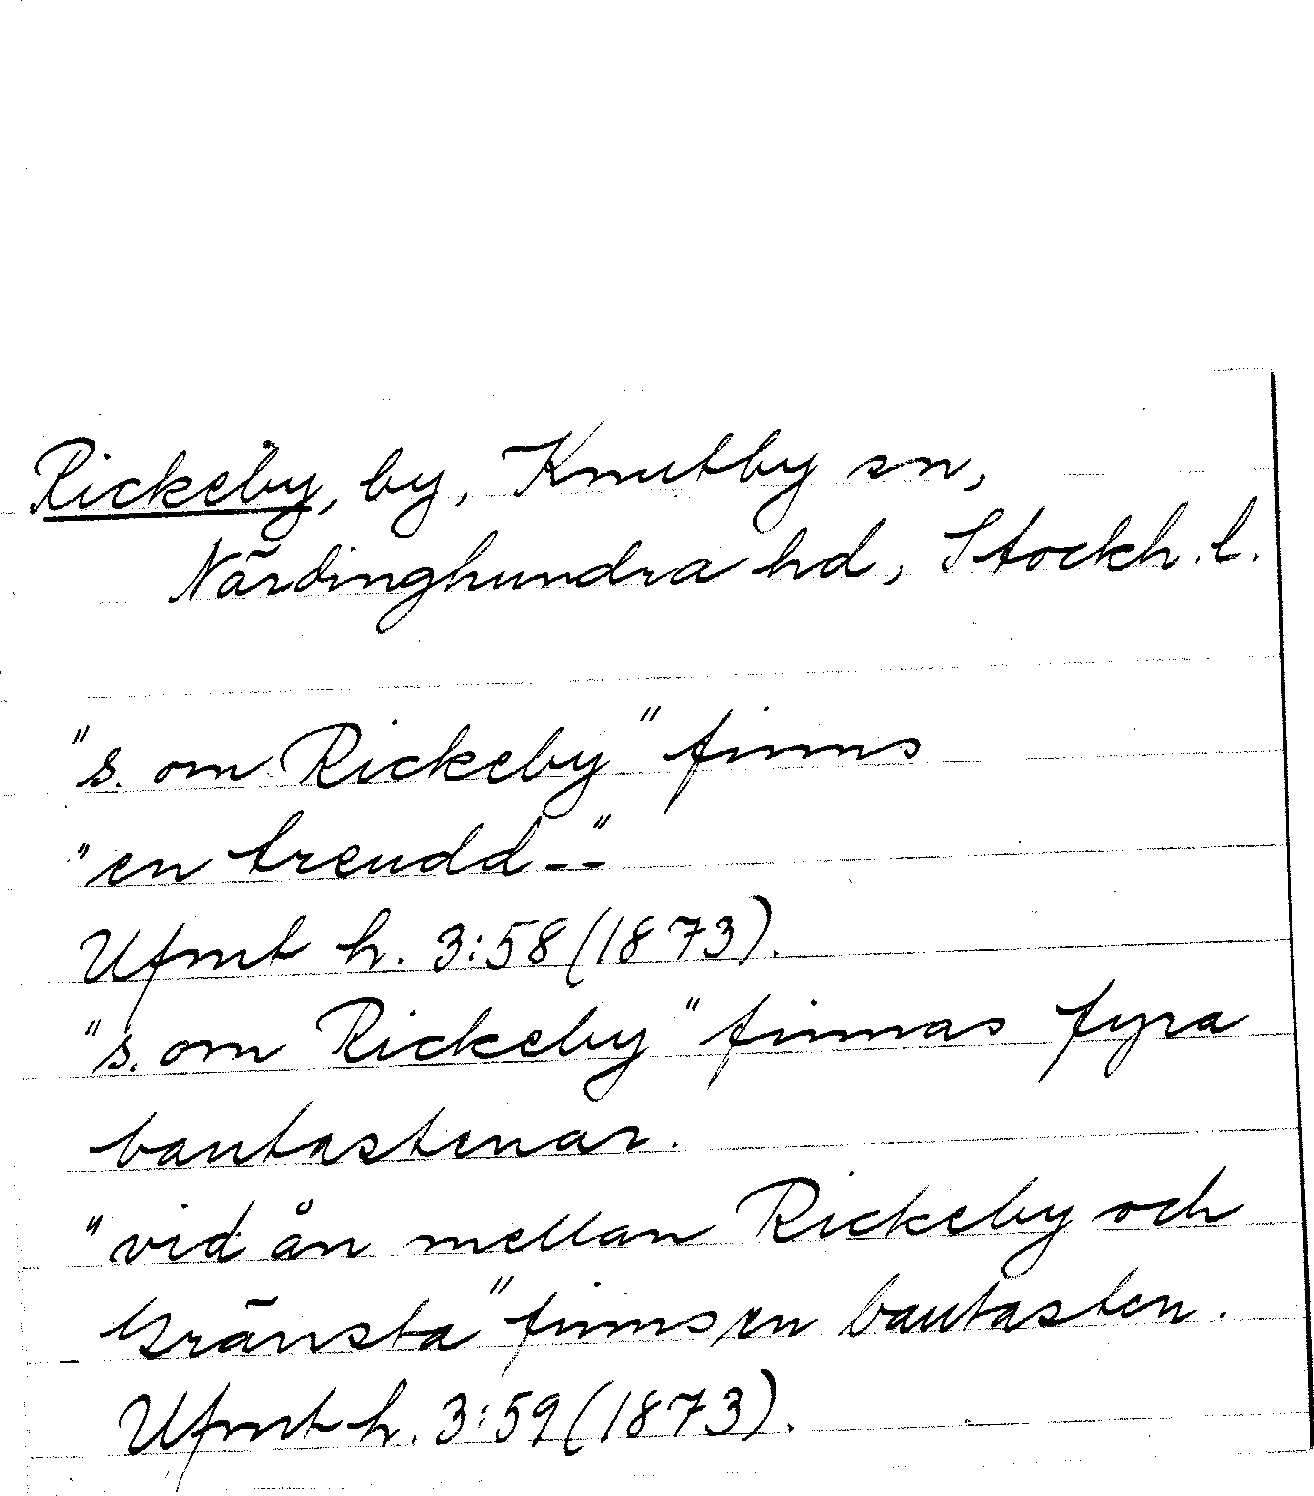 Rickeby, by, Knutby sn,
Närdinghundra hd, Stockh. l.
"s. om Rickeby" finns
"en treudd--"
Ufmt h. 3:58 (1873).
"s. om Rickeby" finnas fyra
bautastenar.
"vid ån mellan Rickeby och
Gränsta" finns en bautasten.
Ufmt h. 3:59 (1873).